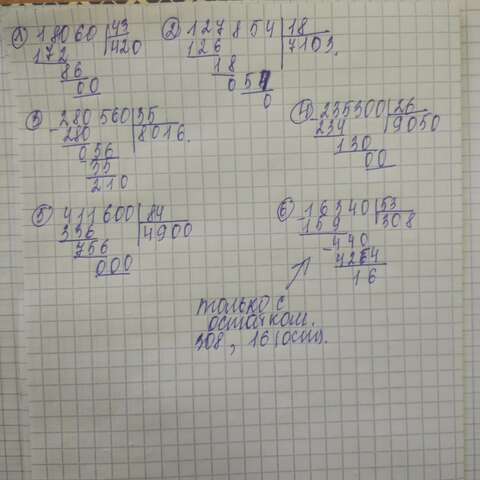 1) 18060 | 43
172 | 420
86
00
2) 127854 | 18
126 | 7103.
18
054
0
3) -280560 | 35
280 | 8016.
056
35
210
4) 235300 | 26
234 | 9050
130
00
5) 411600 | 84
336 | 4900
756
000
6) 16340 | 53
159 | 308
-440
424
16
только с
остатком.
308, 16 (ост).